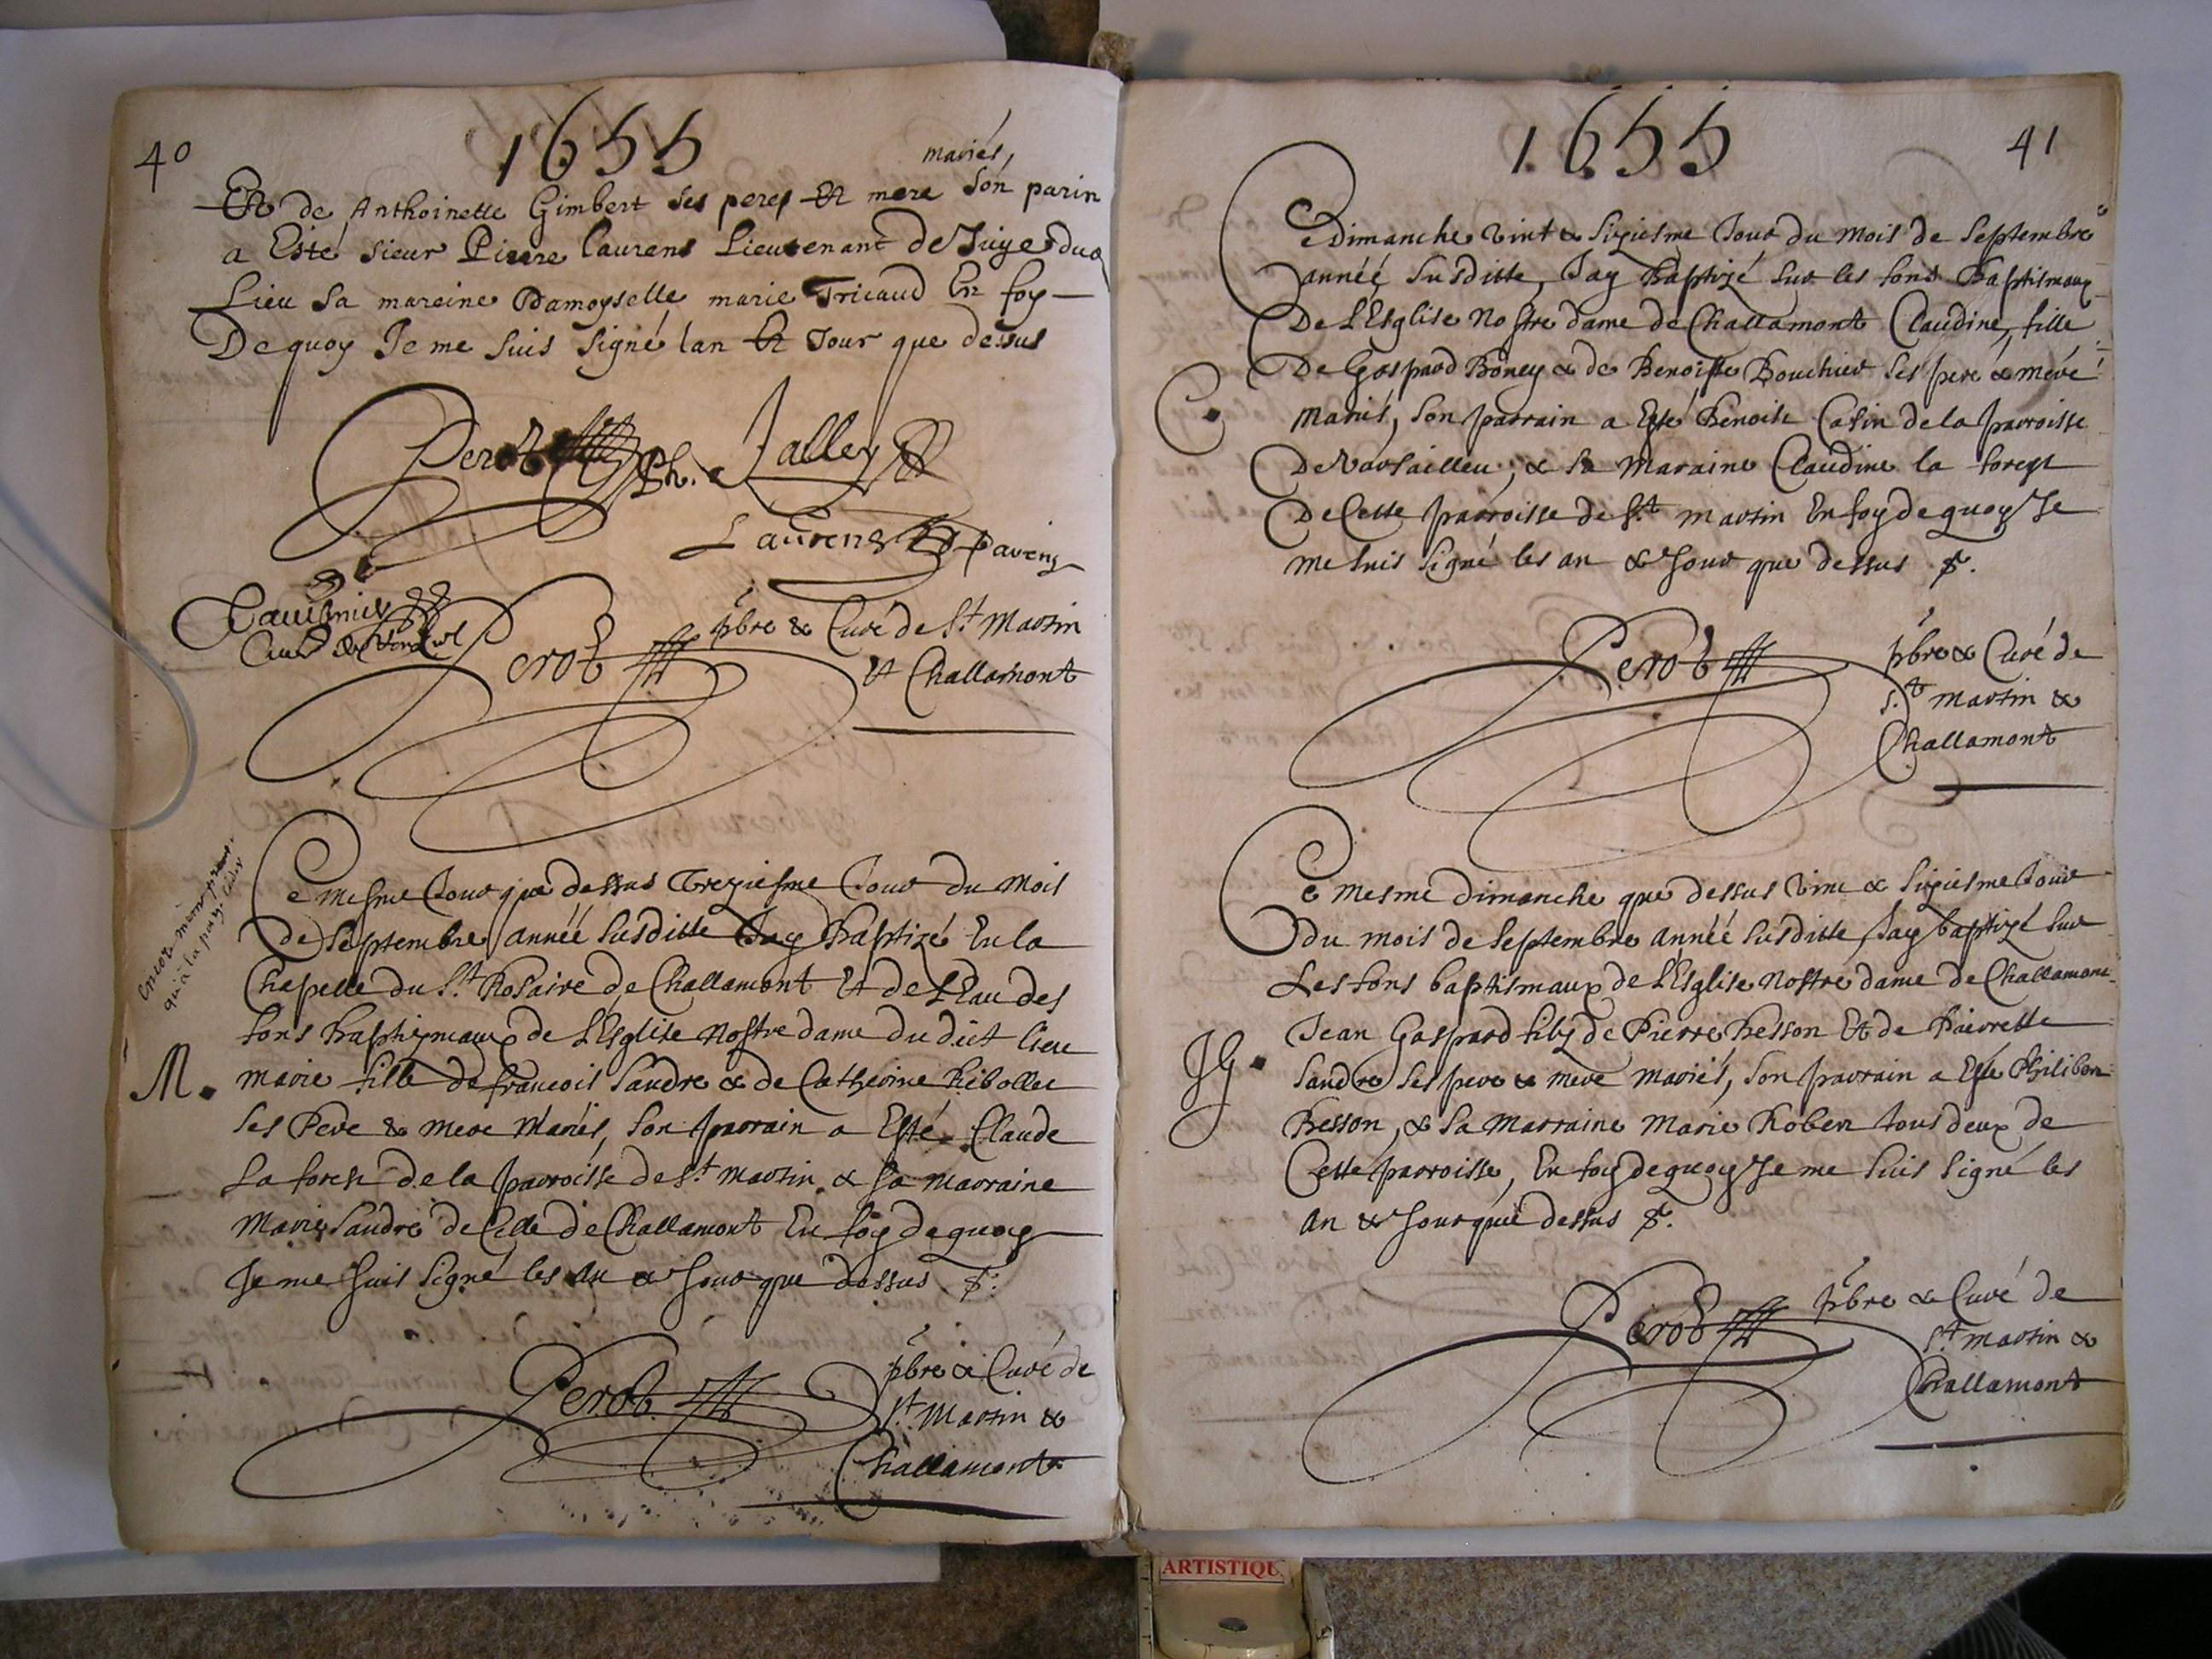 40
1655
mariés,
Et de Anthoinette Gimbert ses peres et mere son parin
a Esté sieur Pierre Laurens Lieutenant de Juge duo
Lieu sa mareine Damoyselle marie Tricaud En foy
De quoy Je me suis signé lan et Jour que dessus
Perot Ph. Jalley
Laurens
Perot pbre & Curé de St Martin
et Challamont
Ce mesme Jour que dessus Treziesme Jour du mois
de Septembre année susditte Jay Baptizé En la
Chapelle du St Rosaire de Challamont Et de L'Eau des
fons Baptizmaux de L'Esglise Nostre dame du dict lieu
M.
marie fille de francois Sandre & de Catherine Ribollet
ses Pere & mere Mariés, son parrain a Esté Claude
La forest de la parroisse de St Martin & sa marraine
Marie Sandre de Celle de Challamont En foy de quoy
Je me suis signé les an & Jour que dessus &.
Perot pbre & Curé de
St Martin &
Challamont
1655
41
Ce Dimanche vint & sixiesme Jour du mois de Septembre
année susditte, Jay Baptizé sur les fons Baptismaux
De L'Esglise Nostre dame de Challamont Claudine, fille
De Gaspard Boney & de Benoiste Bouchier ses pere & mere
C.
Mariés, son parrain a Esté Benoist Catin de la parroisse
De Varsailleu, & sa Maraine Claudine la forest
De Cette parroisse de St Martin En foy de quoy Je
me suis signé les an & Jour que dessus &.
Perot pbre & Curé de
St Martin &
Challamont
Ce mesme dimanche que dessus vint & sixiesme Jour
du mois de Septembre année susditte, Jay baptizé sur
Les fons baptismaux de L'Esglise Nostre dame de Challamont
Jean Gaspard filz de Pierre Besson Et de Pierrette
JG.
Sandre ses pere & mere mariés, son parrain a Esté Philibert
Besson, & sa Marraine Marie Robert tous deux de
Cette parroisse, En foy de quoy Je me suis signé les
an & Jour que dessus &.
Perot pbre & Curé de
St Martin &
Challamont
ARTISTIQU